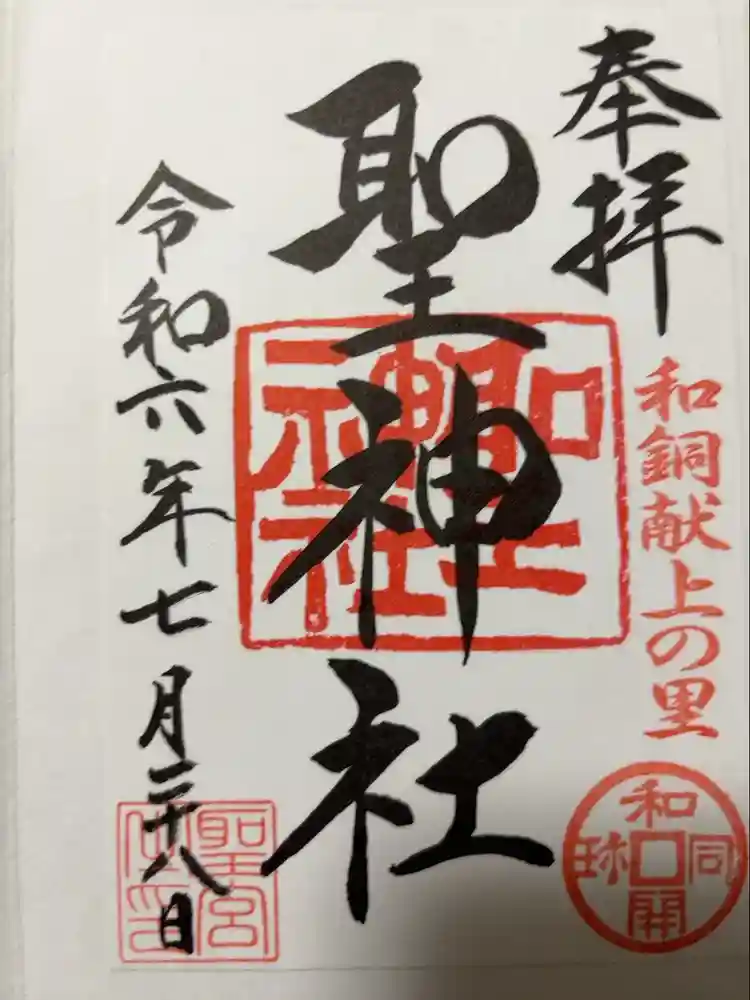 奉拝
和銅献上の里
和同開珎
聖神社
聖神社
令和六年七月二十八日